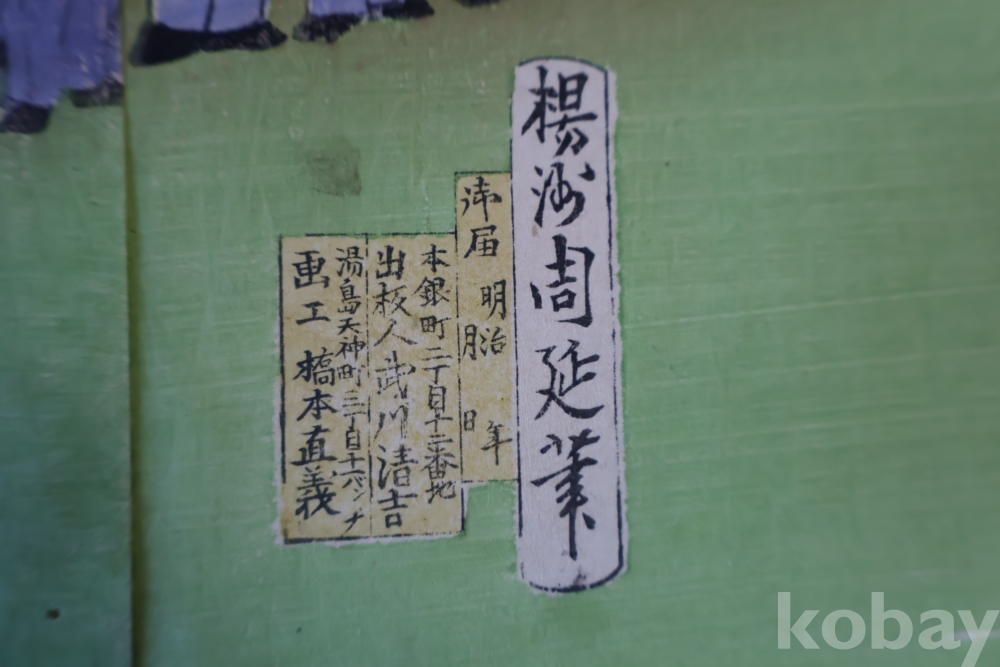 楊洲周延筆
御届 明治 年
月 日
本銀町二丁目十二番地
出板人 武川清吉
湯島天神町三丁目十六バンチ
画工 橋本直義
kobay